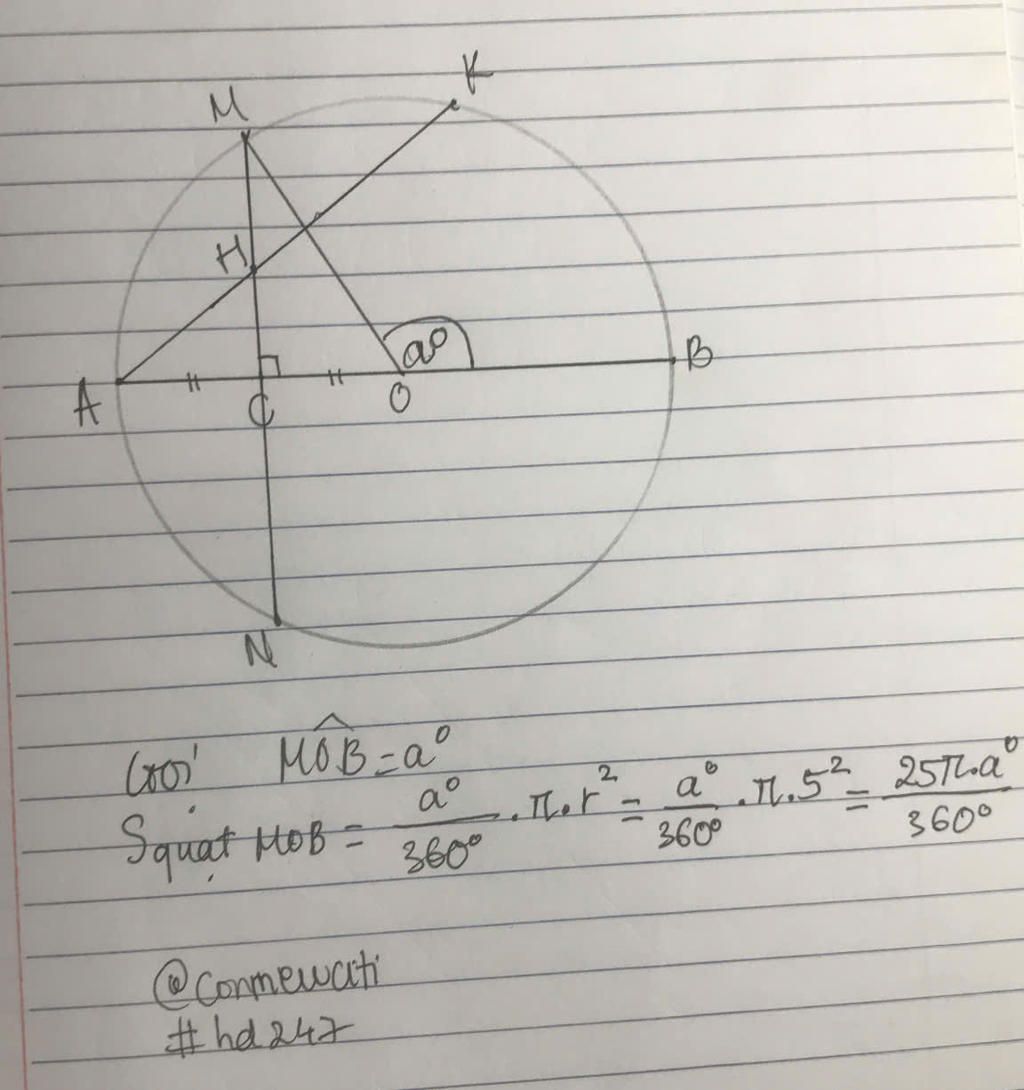 M
K
H
a°
B
A
C
O
N
Gọi MÔB = a°
Squạt MOB = a°/360° . π.r² = a°/360° .π.5² = 25π.a°/360°
@conmewati
#hd247